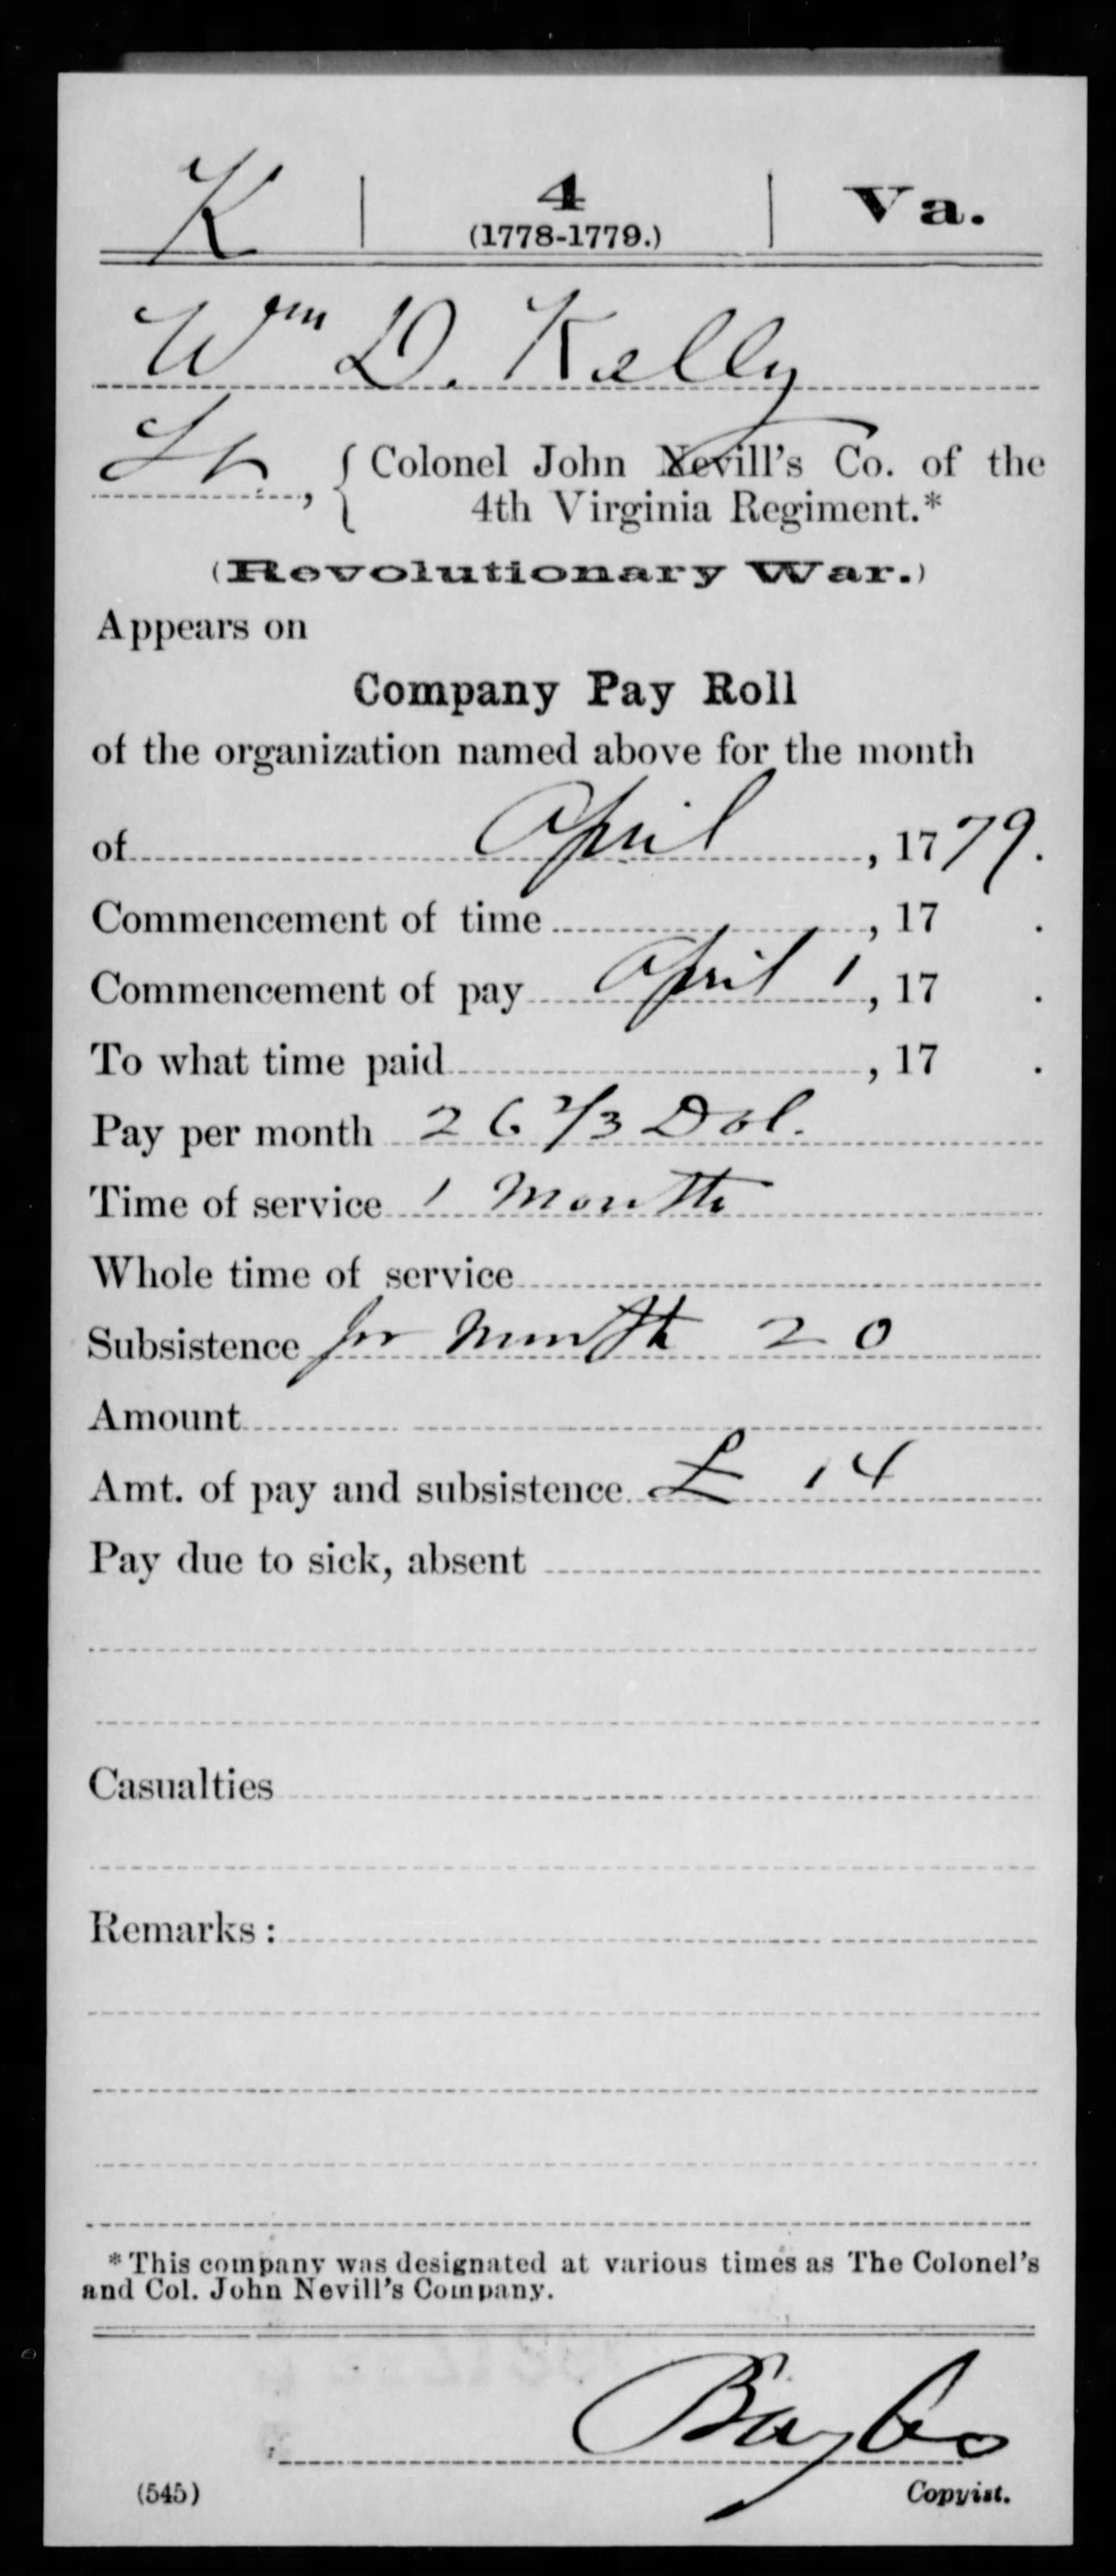 K | 4 | Va.
(1778-1779.)
Wm D. Kelly
Lt., { Colonel John Nevill's Co. of the
4th Virginia Regiment.*
(Revolutionary War.)
Appears on
Company Pay Roll
of the organization named above for the month
of April, 1779.
Commencement of time , 17 .
Commencement of pay April 1, 17 .
To what time paid , 17 .
Pay per month 26 2/3 Dol.
Time of service 1 Month
Whole time of service
Subsistence per Month 20
Amount
Amt. of pay and subsistence £ 14
Pay due to sick, absent
Casualties
Remarks:
*This company was designated at various times as The Colonel's
and Col. John Nevill's Company.
(545) Copyist.